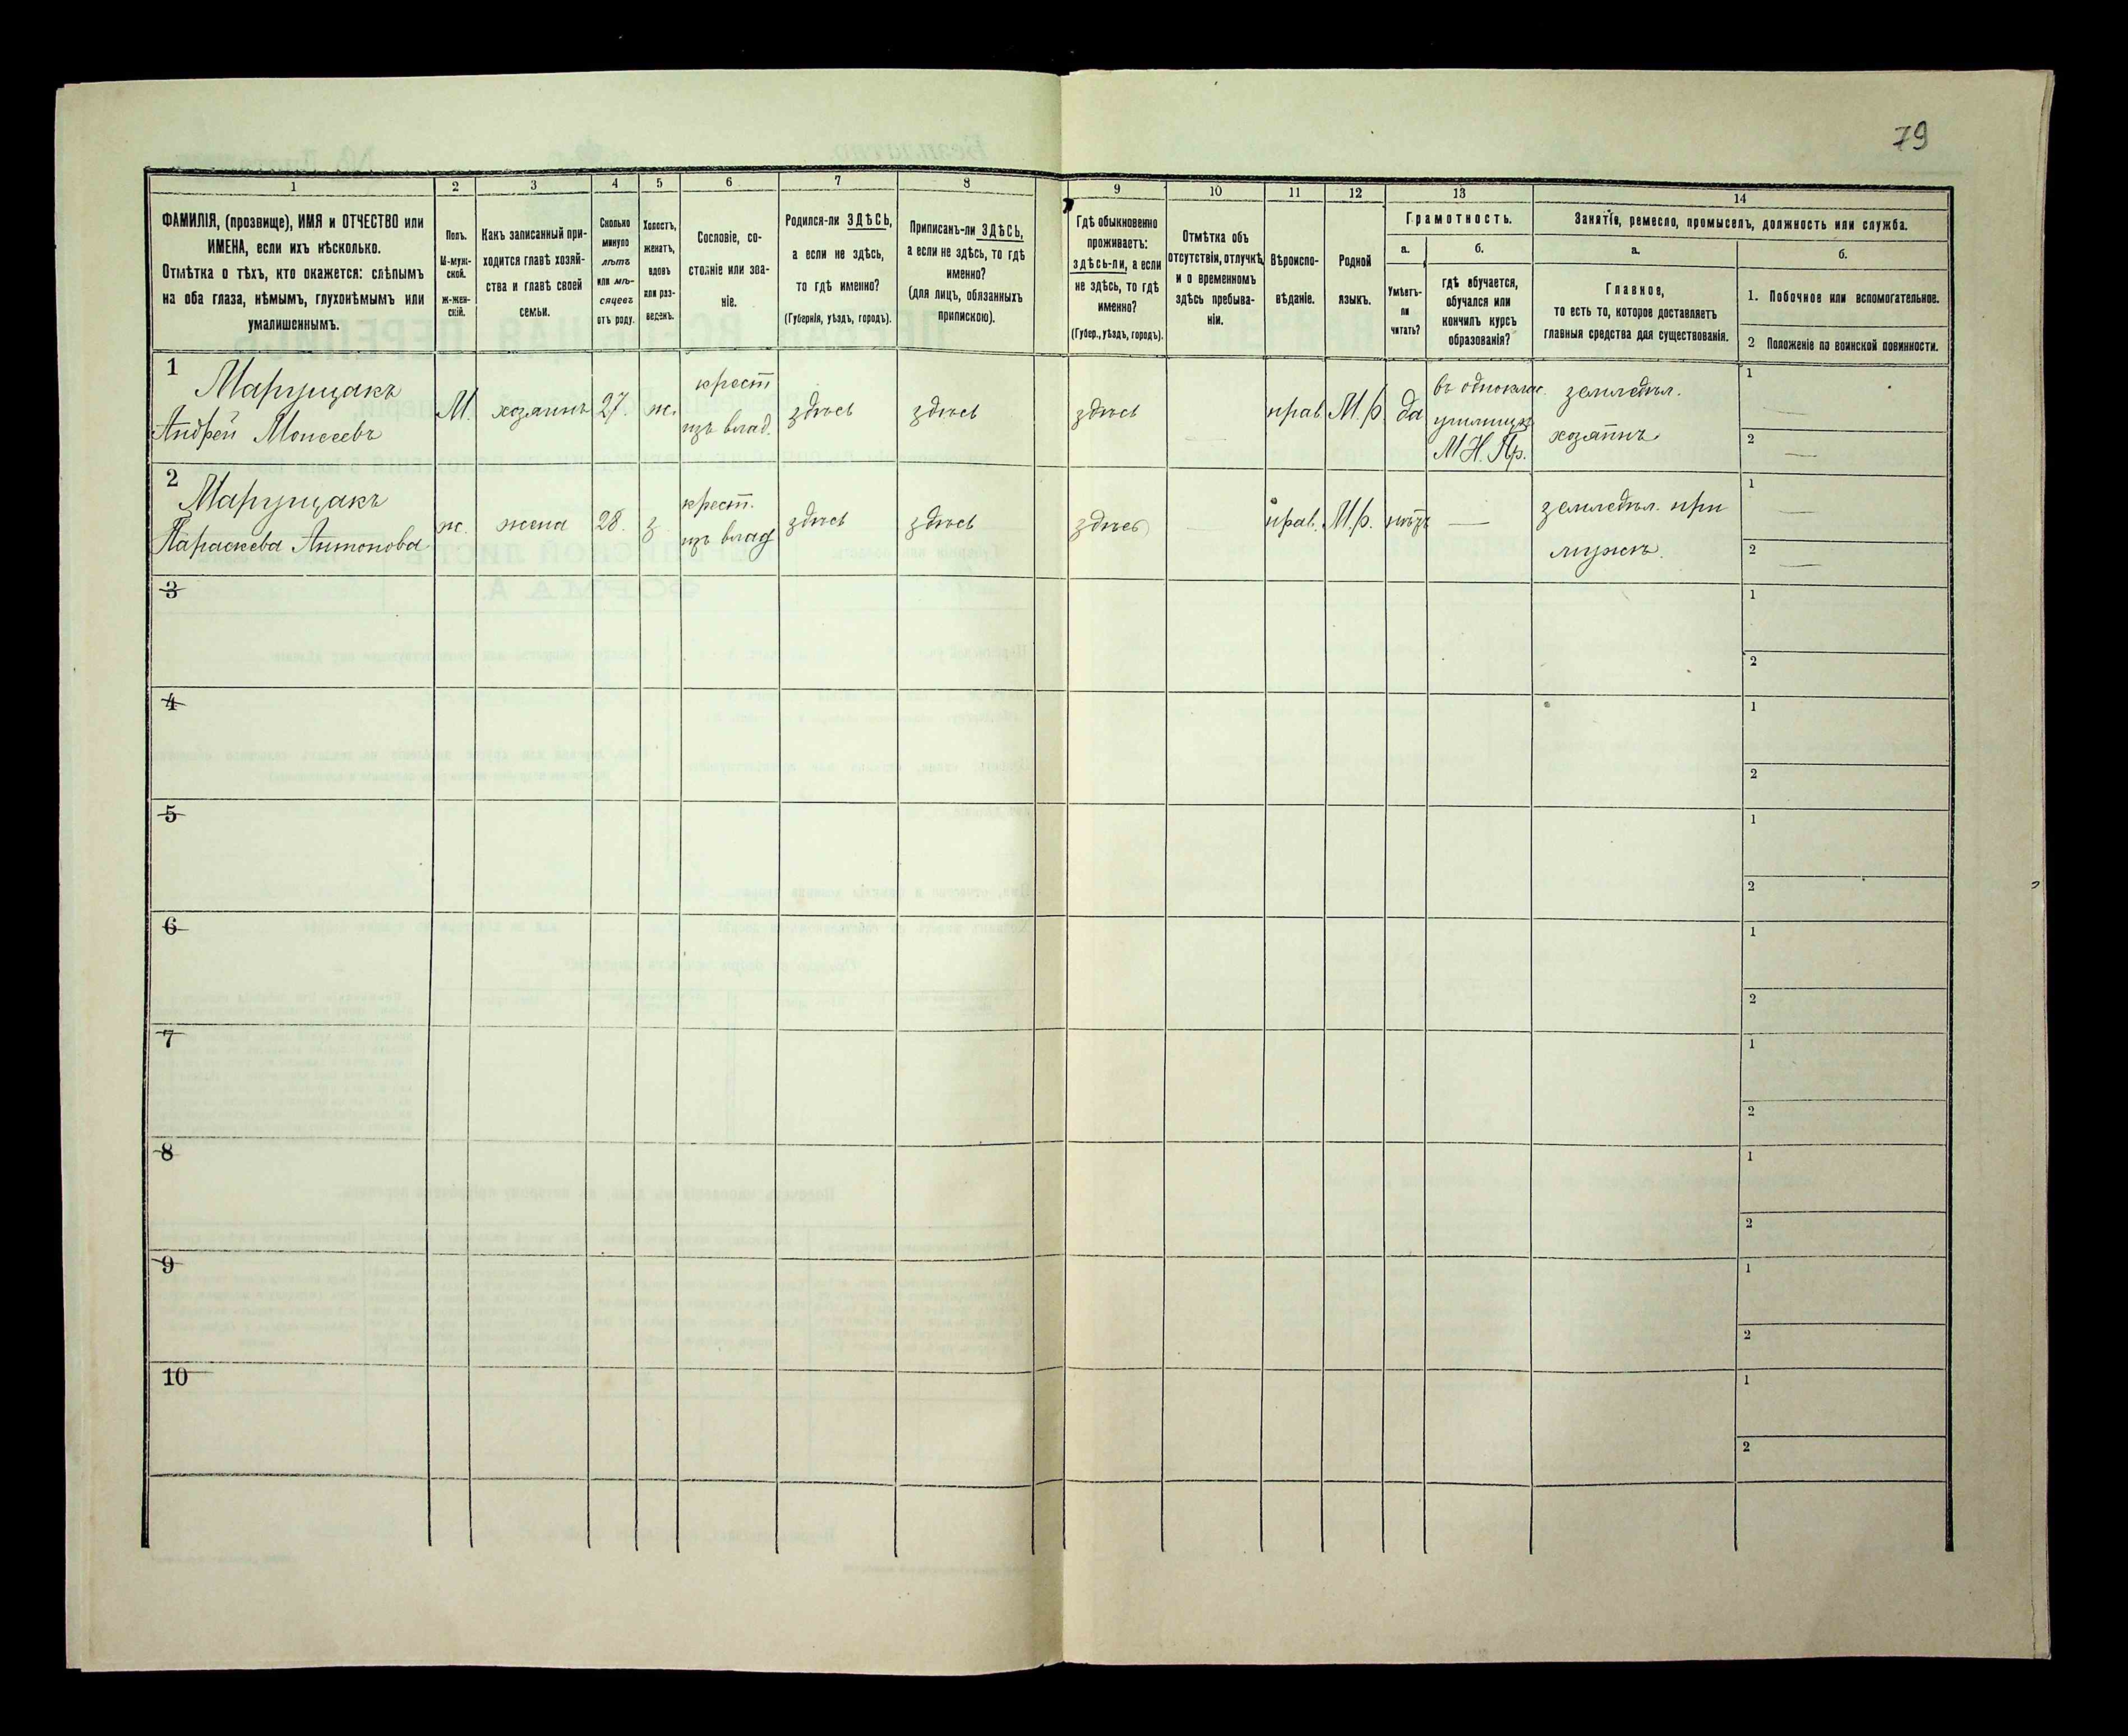 79
1 2 3 4 5 6 7 8 9 10 11 12 13 14
ФАМИЛІЯ, (прозвище), ИМЯ и ОТЧЕСТВО или
ИМЕНА, если ихъ нѣсколько.
Отмѣтка о тѣхъ, кто окажется: слѣпымъ
на оба глаза, нѣмымъ, глухонѣмымъ или
умалишеннымъ.
Полъ.
М-муж-
ской.
ж-жен-
скій.
Какъ записанный при-
ходится главѣ хозяй-
ства и главѣ своей
семьи.
Сколько
минуло
лѣтъ
или мѣ-
сяцевъ
отъ роду.
Холостъ,
женатъ,
вдовъ
или раз-
веденъ.
Сословіе, со-
стояніе или зва-
ніе.
Родился-ли ЗДѢСЬ,
а если не здѣсь,
то гдѣ именно?
(Губернія, уѣздъ, городъ).
Приписанъ-ли ЗДѢСЬ,
а если не здѣсь, то гдѣ
именно?
(для лицъ, обязанныхъ
припискою).
Гдѣ обыкновенно
проживаетъ:
здѣсь-ли, а если
не здѣсь, то гдѣ
именно?
(Губер., уѣздъ, городъ).
Отмѣтка объ
отсутствіи, отлучкѣ
и о временномъ
здѣсь пребыва-
ніи.
Вѣроиспо-
вѣданіе.
Родной
языкъ.
Грамотность.
а.
Умѣетъ-
ли
читать?
б.
гдѣ обучается,
обучался или
кончилъ курсъ
образованія?
Занятіе, ремесло, промыселъ, должность или служба.
а.
Главное,
то есть то, которое доставляетъ
главныя средства для существованія.
б.
1. Побочное или вспомогательное.
2 Положеніе по воинской повинности.
1
Марущакъ
Андрей Моисеевъ
М.
хозяинъ
27.
ж.
крест
изъ влад.
здѣсь
здѣсь
здѣсь
—
прав.
М.р.
да
въ однокл.
училищѣ
М Н. Пр.
земледѣл.
хозяинъ
1 —
2 —
2
Марущакъ
Параскева Антонова
ж.
жена
28.
з.
крест.
изъ влад
здѣсь
здѣсь
здѣсь
—
прав.
М.р.
нѣтъ
—
земледѣл. при
мужѣ.
1 —
2 —
3
1
2
4
1
2
5
1
2
6
1
2
7
1
2
8
1
2
9
1
2
10
1
2